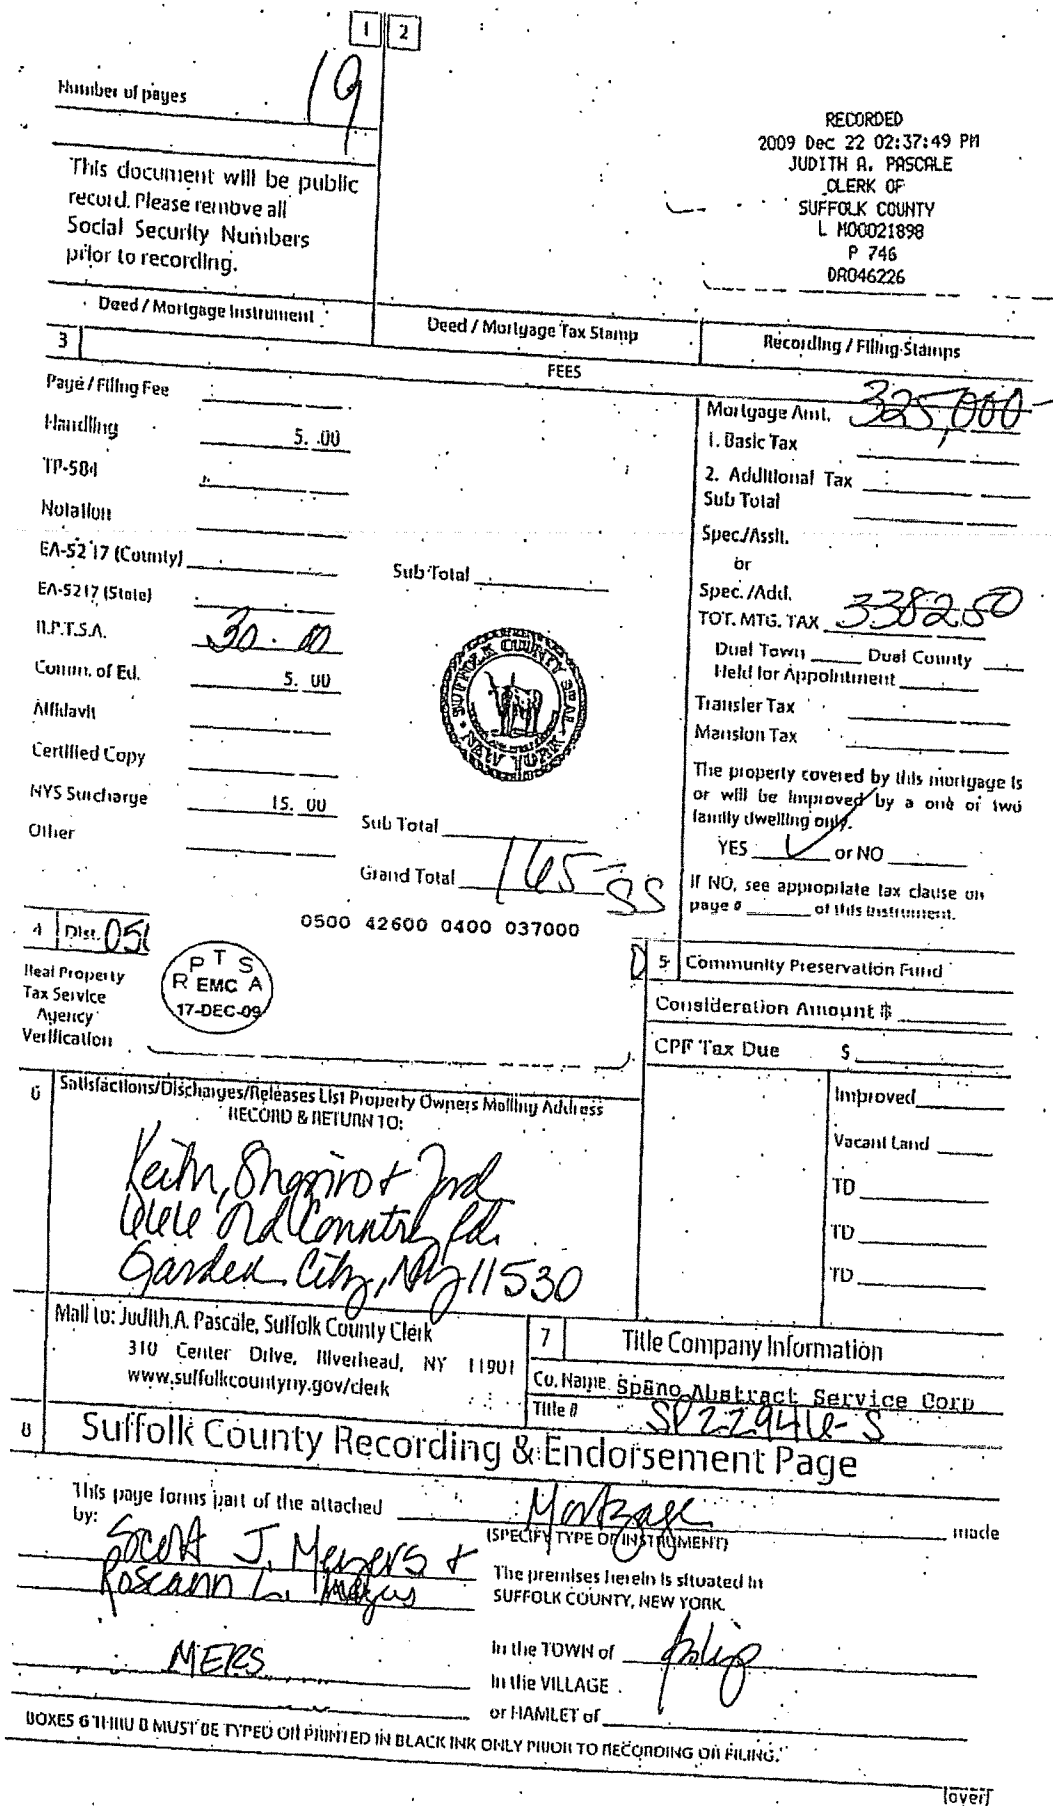 1 2
Number of pages 19
This document will be public
record. Please remove all
Social Security Numbers
prior to recording.
RECORDED
2009 Dec 22 02:37:49 PM
JUDITH A. PASCALE
CLERK OF
SUFFOLK COUNTY
L M00021898
P 746
DR046226
Deed / Mortgage Instrument
Deed / Mortgage Tax Stamp
Recording / Filing Stamps
3
FEES
Page / Filing Fee
Handling 5. 00
TP-584
Notation
EA-52 17 (County)
EA-5217 (State)
R.P.T.S.A. 30. 00
Comm. of Ed. 5. 00
Affidavit
Certified Copy
NYS Surcharge 15. 00
Other
Sub Total
SUFFOLK COUNTY SEAL
NEW YORK
Sub Total
Grand Total 165- SS
Mortgage Amt. 325,000-
1. Basic Tax
2. Additional Tax
Sub Total
Spec./Assit.
or
Spec. /Add.
TOT. MTG. TAX 3382.50
Dual Town Dual County
Held for Appointment
Transfer Tax
Mansion Tax
The property covered by this mortgage is
or will be improved by a one or two
family dwelling only.
YES ✓ or NO
If NO, see appropriate tax clause on
page # of this instrument.
4 Dist. 050
0500 42600 0400 037000
Real Property
Tax Service
Agency
Verification
R P T S A
EMC
17-DEC-09
5 Community Preservation Fund
Consideration Amount $
CPF Tax Due $
Improved
Vacant Land
TD
TD
TD
6 Satisfactions/Discharges/Releases List Property Owners Mailing Address
RECORD & RETURN TO:
Keith, Shapiro & Ford
Old Country Rd.
Garden City, NY 11530
Mail to: Judith A. Pascale, Suffolk County Clerk
310 Center Drive, Riverhead, NY 11901
www.suffolkcountyny.gov/clerk
7 Title Company Information
Co. Name Spano Abstract Service Corp
Title # SP22946-S
8 Suffolk County Recording & Endorsement Page
This page forms part of the attached Mortgage made
by:
(SPECIFY TYPE OF INSTRUMENT)
Scott J. Meyers &
Roseann L. Meyers
MERS
The premises herein is situated in
SUFFOLK COUNTY, NEW YORK.
In the TOWN of Islip
In the VILLAGE
or HAMLET of
BOXES 6 THRU 8 MUST BE TYPED OR PRINTED IN BLACK INK ONLY PRIOR TO RECORDING OR FILING.
(over)